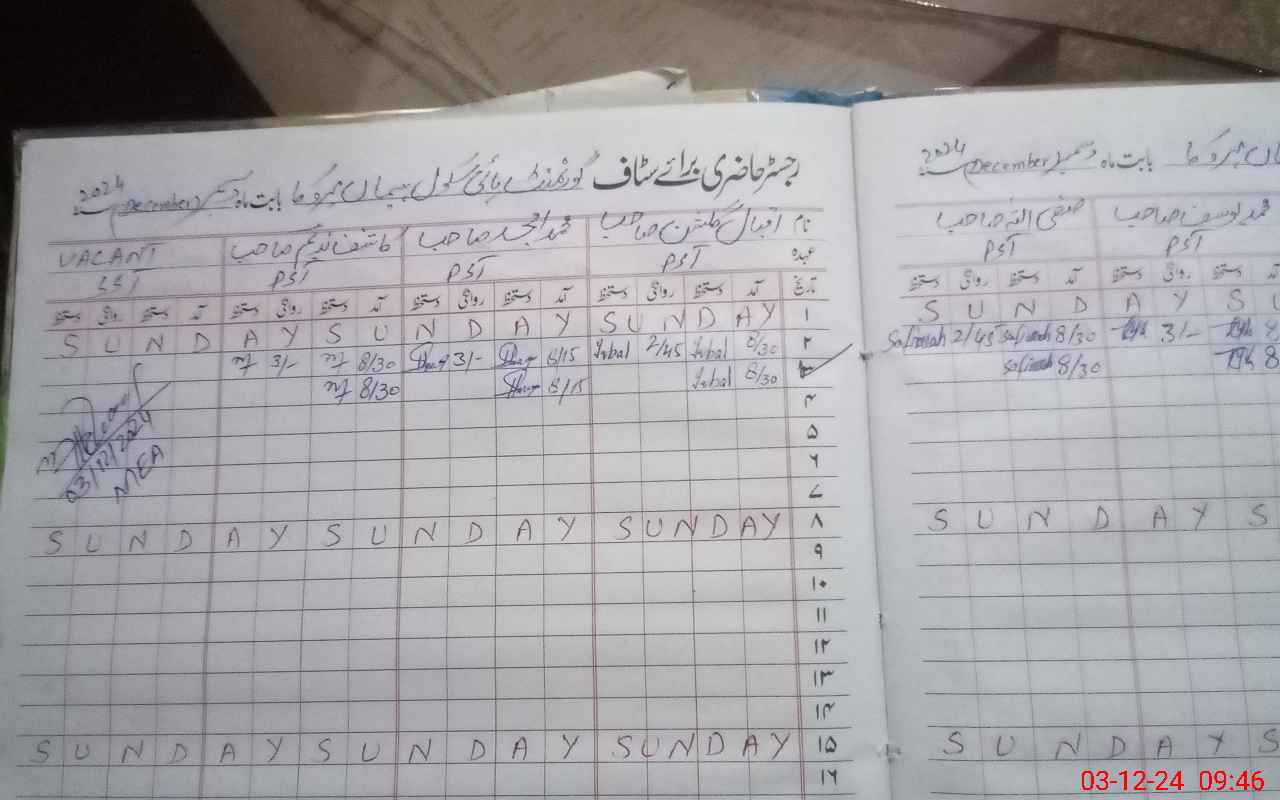 رجسٹر حاضری برائے سٹاف گورنمنٹ ہائی سکول بابت ماہ دسمبر (December) سنہ 2024
نام اقبال گلشن صاحب محمد امجد صاحب کاشف ندیم صاحب VACANT
عہدہ PST PST PST SST
تاریخ آمد دستخط روانگی دستخط آمد دستخط روانگی دستخط آمد دستخط روانگی دستخط آمد دستخط روانگی دستخط
۱ S U N D A Y S U N D A Y S U N D A Y
۲ 8/30 Iqbal 2/45 Iqbal 8/15 3/- 8/30 3/-
۳ 8/30 Iqbal 8/15 8/30
۴
۵
۶
۷
03/12/2024
MEA
۸ S U N D A Y S U N D A Y S U N D A Y
۹
۱۰
۱۱
۱۲
۱۳
۱۴
۱۵ S U N D A Y S U N D A Y S U N D A Y
۱۶
بابت ماہ دسمبر (December) سنہ 2024
محمد یوسف صاحب صفی اللہ صاحب
PST PST
آمد دستخط روانگی دستخط آمد دستخط روانگی دستخط
S U N D A Y S U
2/45 8/30 3/- 8
8/30 8
S U N D A Y S
S U N D A Y S
03-12-24 09:46